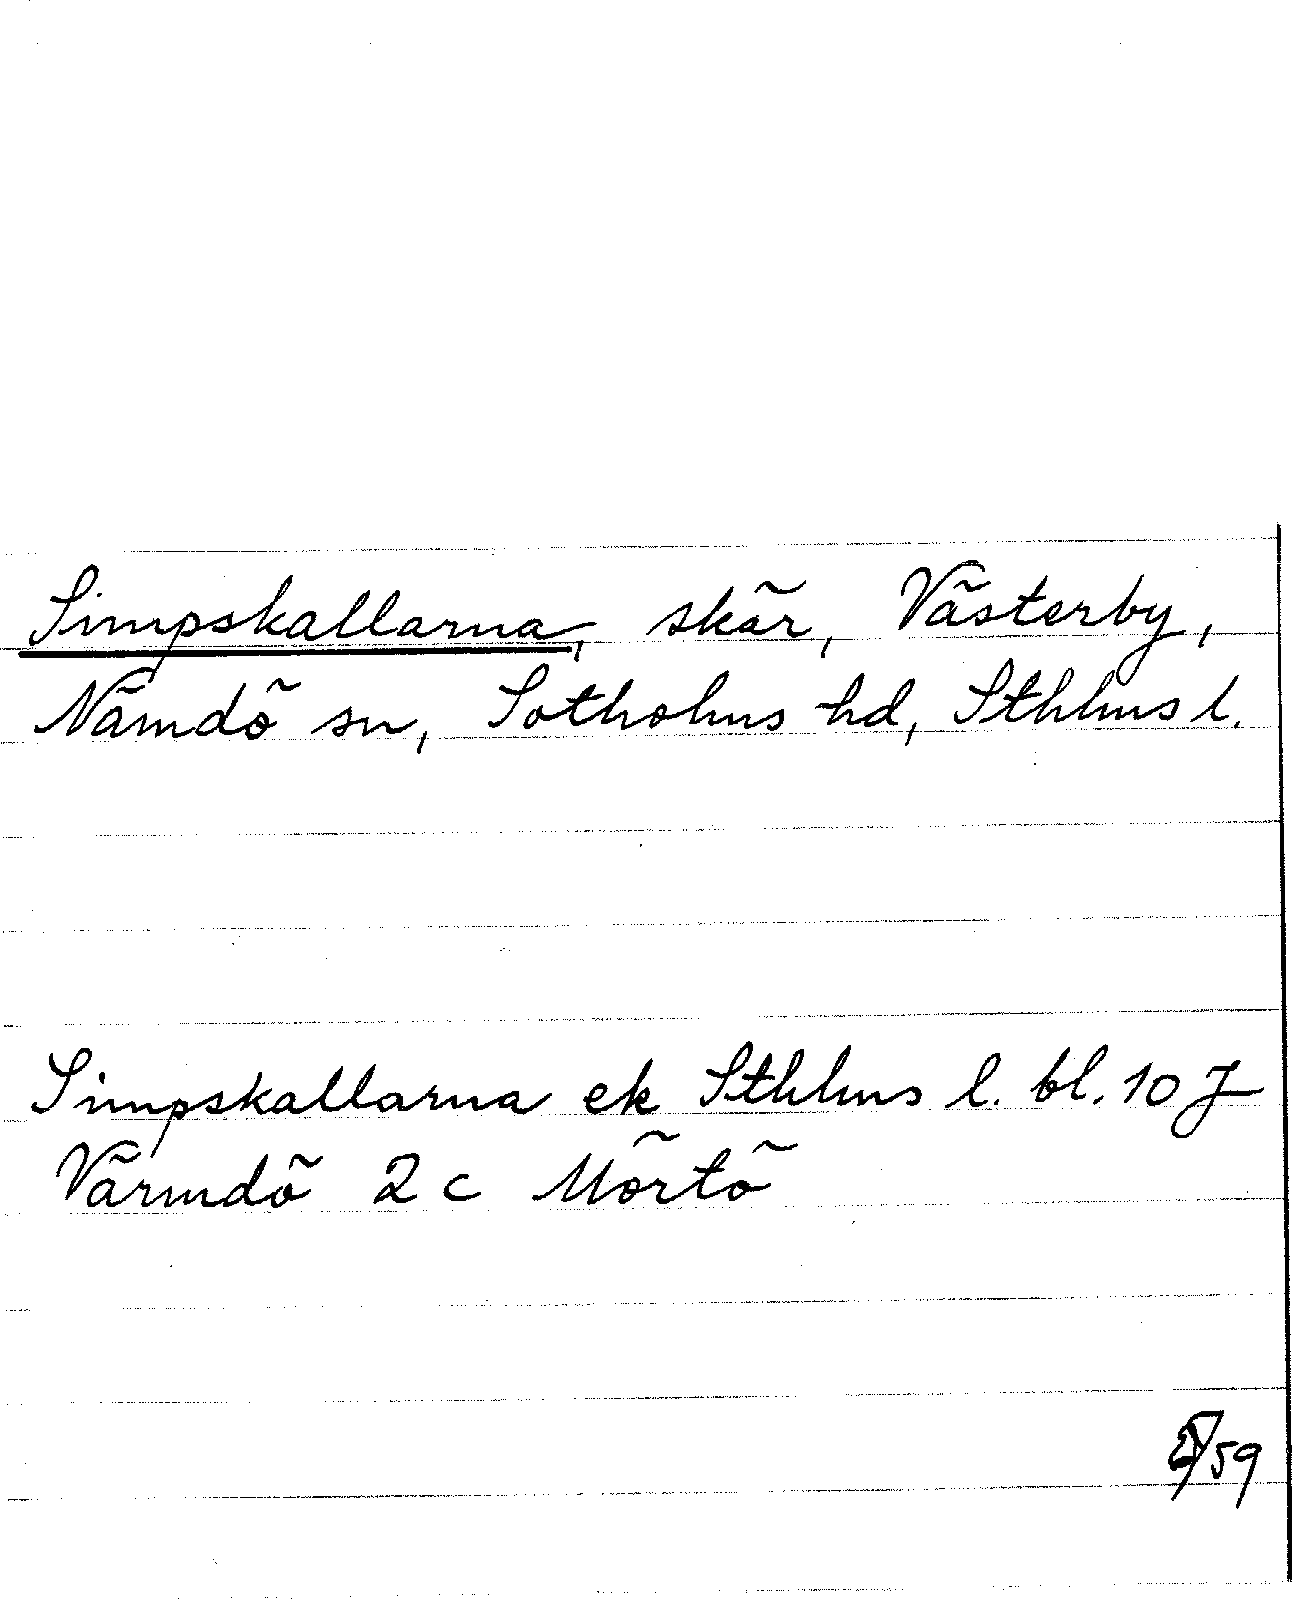 Simpskallarna, skär, Västerby,
Nämdö sn, Sotholms hd, Sthlms l.
Simpskallarna ek Sthlms l. bl. 10 J
Värmdö 2 c Mörtö
59